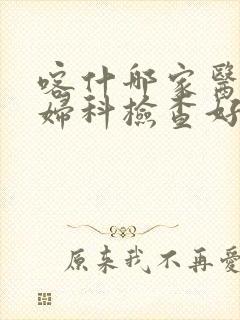 喀什那家醫
婦科檢查好
原来我不再愛